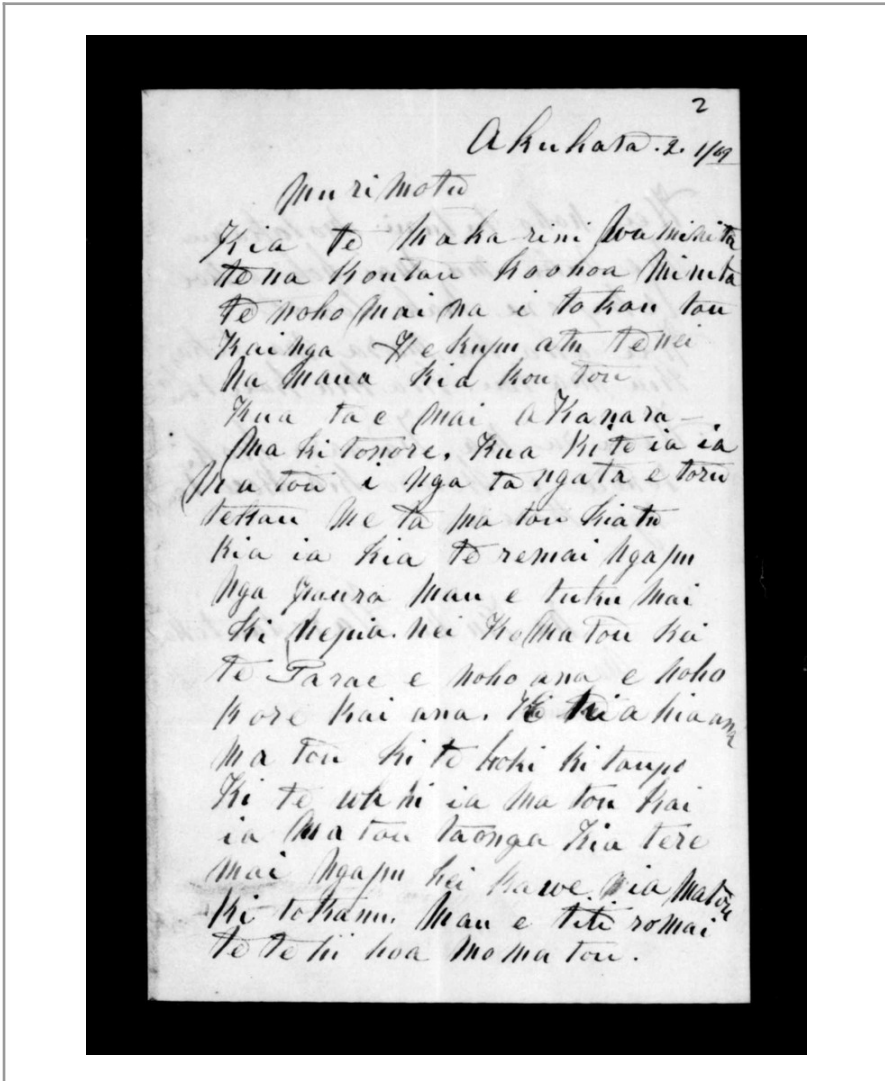 2
Akuhata. 2. 1/69
Muri Motu
Kia te Maka rini Wa minita
tena Koutau hoohoa Minita
te noho mai na i to kou tou
Kainga He kupu atu tenei
Na Maua Kia kou tou
Kua tae mai a Kanara
Ma ki tonore. Kua Kiteia ia
Ma tou i nga ta ngata e toru
tekau me ta ma tou kiatu
kia ia kia te remai ngapu
nga paura Mau e tuku mai
ki Nepia. nei Ko Ma tou kei
te Parae e noho ana e noho
kore kai ana. He hia hia ana
ma tou ki te hoki ki taupo
Ki te uta ki ia ma tou kai
ia Ma tou taonga kia tere
mai ngapu hei kawe ia matou
ki tokanu. Mau e titi romai
te te hi hoa mo ma tou.